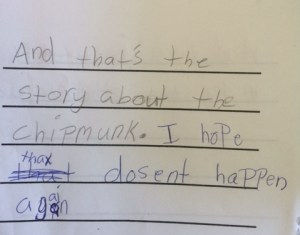 And that's the
story about the
chipmunk. I hope
that dosent happen
again